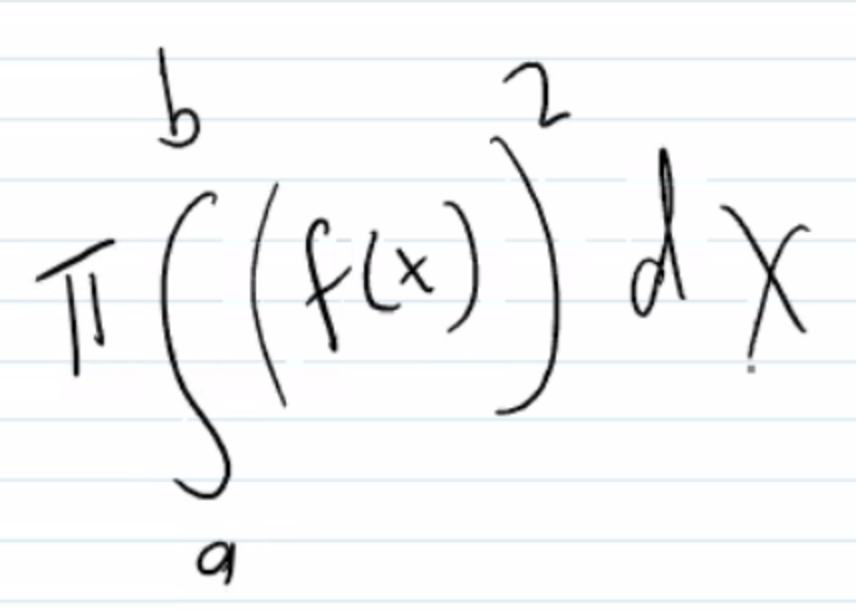 π∫_a^b (f(x))^2 dx